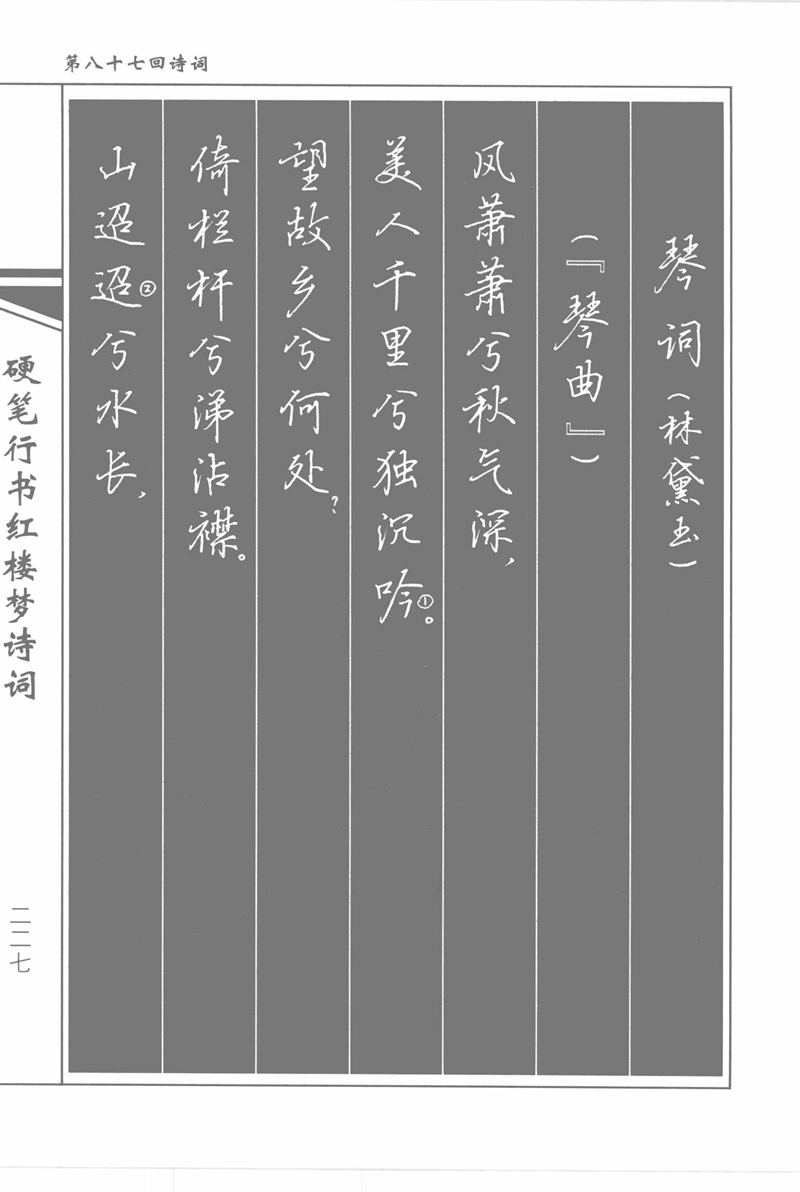 第八十七回诗词
琴词(林黛玉)
(『琴曲』)
风萧萧兮秋气深,
美人千里兮独沉吟①。
望故乡兮何处?
倚栏杆兮涕沾襟。
山迢迢②兮水长,
硬笔行书红楼梦诗词
二二七